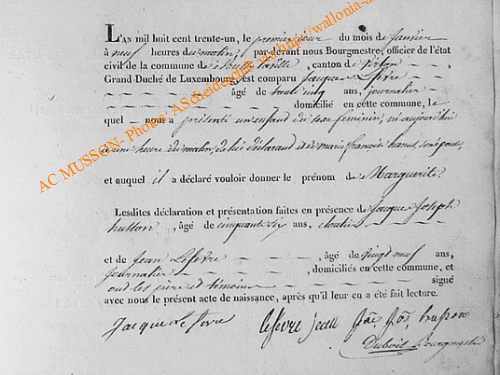 L'AN mil huit cent trente-un, le premier jour du mois de Janvier
à neuf heures du matin, par-devant nous Bourgmestre, officier de l'état
civil de la commune de , canton de Virton
Grand Duché de Luxembourg, est comparu Jacques Lefevre
âgé de trente cinq ans, journalier
domicilié en cette commune, le
quel nous a présenté un enfant du sexe feminin, né aujourd'hui
à une heure du matin, de lui déclarant et de marie françoise hanus, son épouse,
et auquel il a déclaré vouloir donner le prénom de Marguerite.
Lesdites déclaration et présentation faites en présence de Jacque Joseph
hutton, âgé de cinquante six ans, cloutier
et de Jean Lefevre âgé de vingt neuf ans,
journalier , domiciliés en cette commune, et
ont les père et témoins signé
avec nous le présent acte de naissance, après qu'il leur en a été fait lecture.
Jacque Lefevre lefevre jean
Dubois Bourgmestre
AC MUSSON- Photos: AScheidenritte